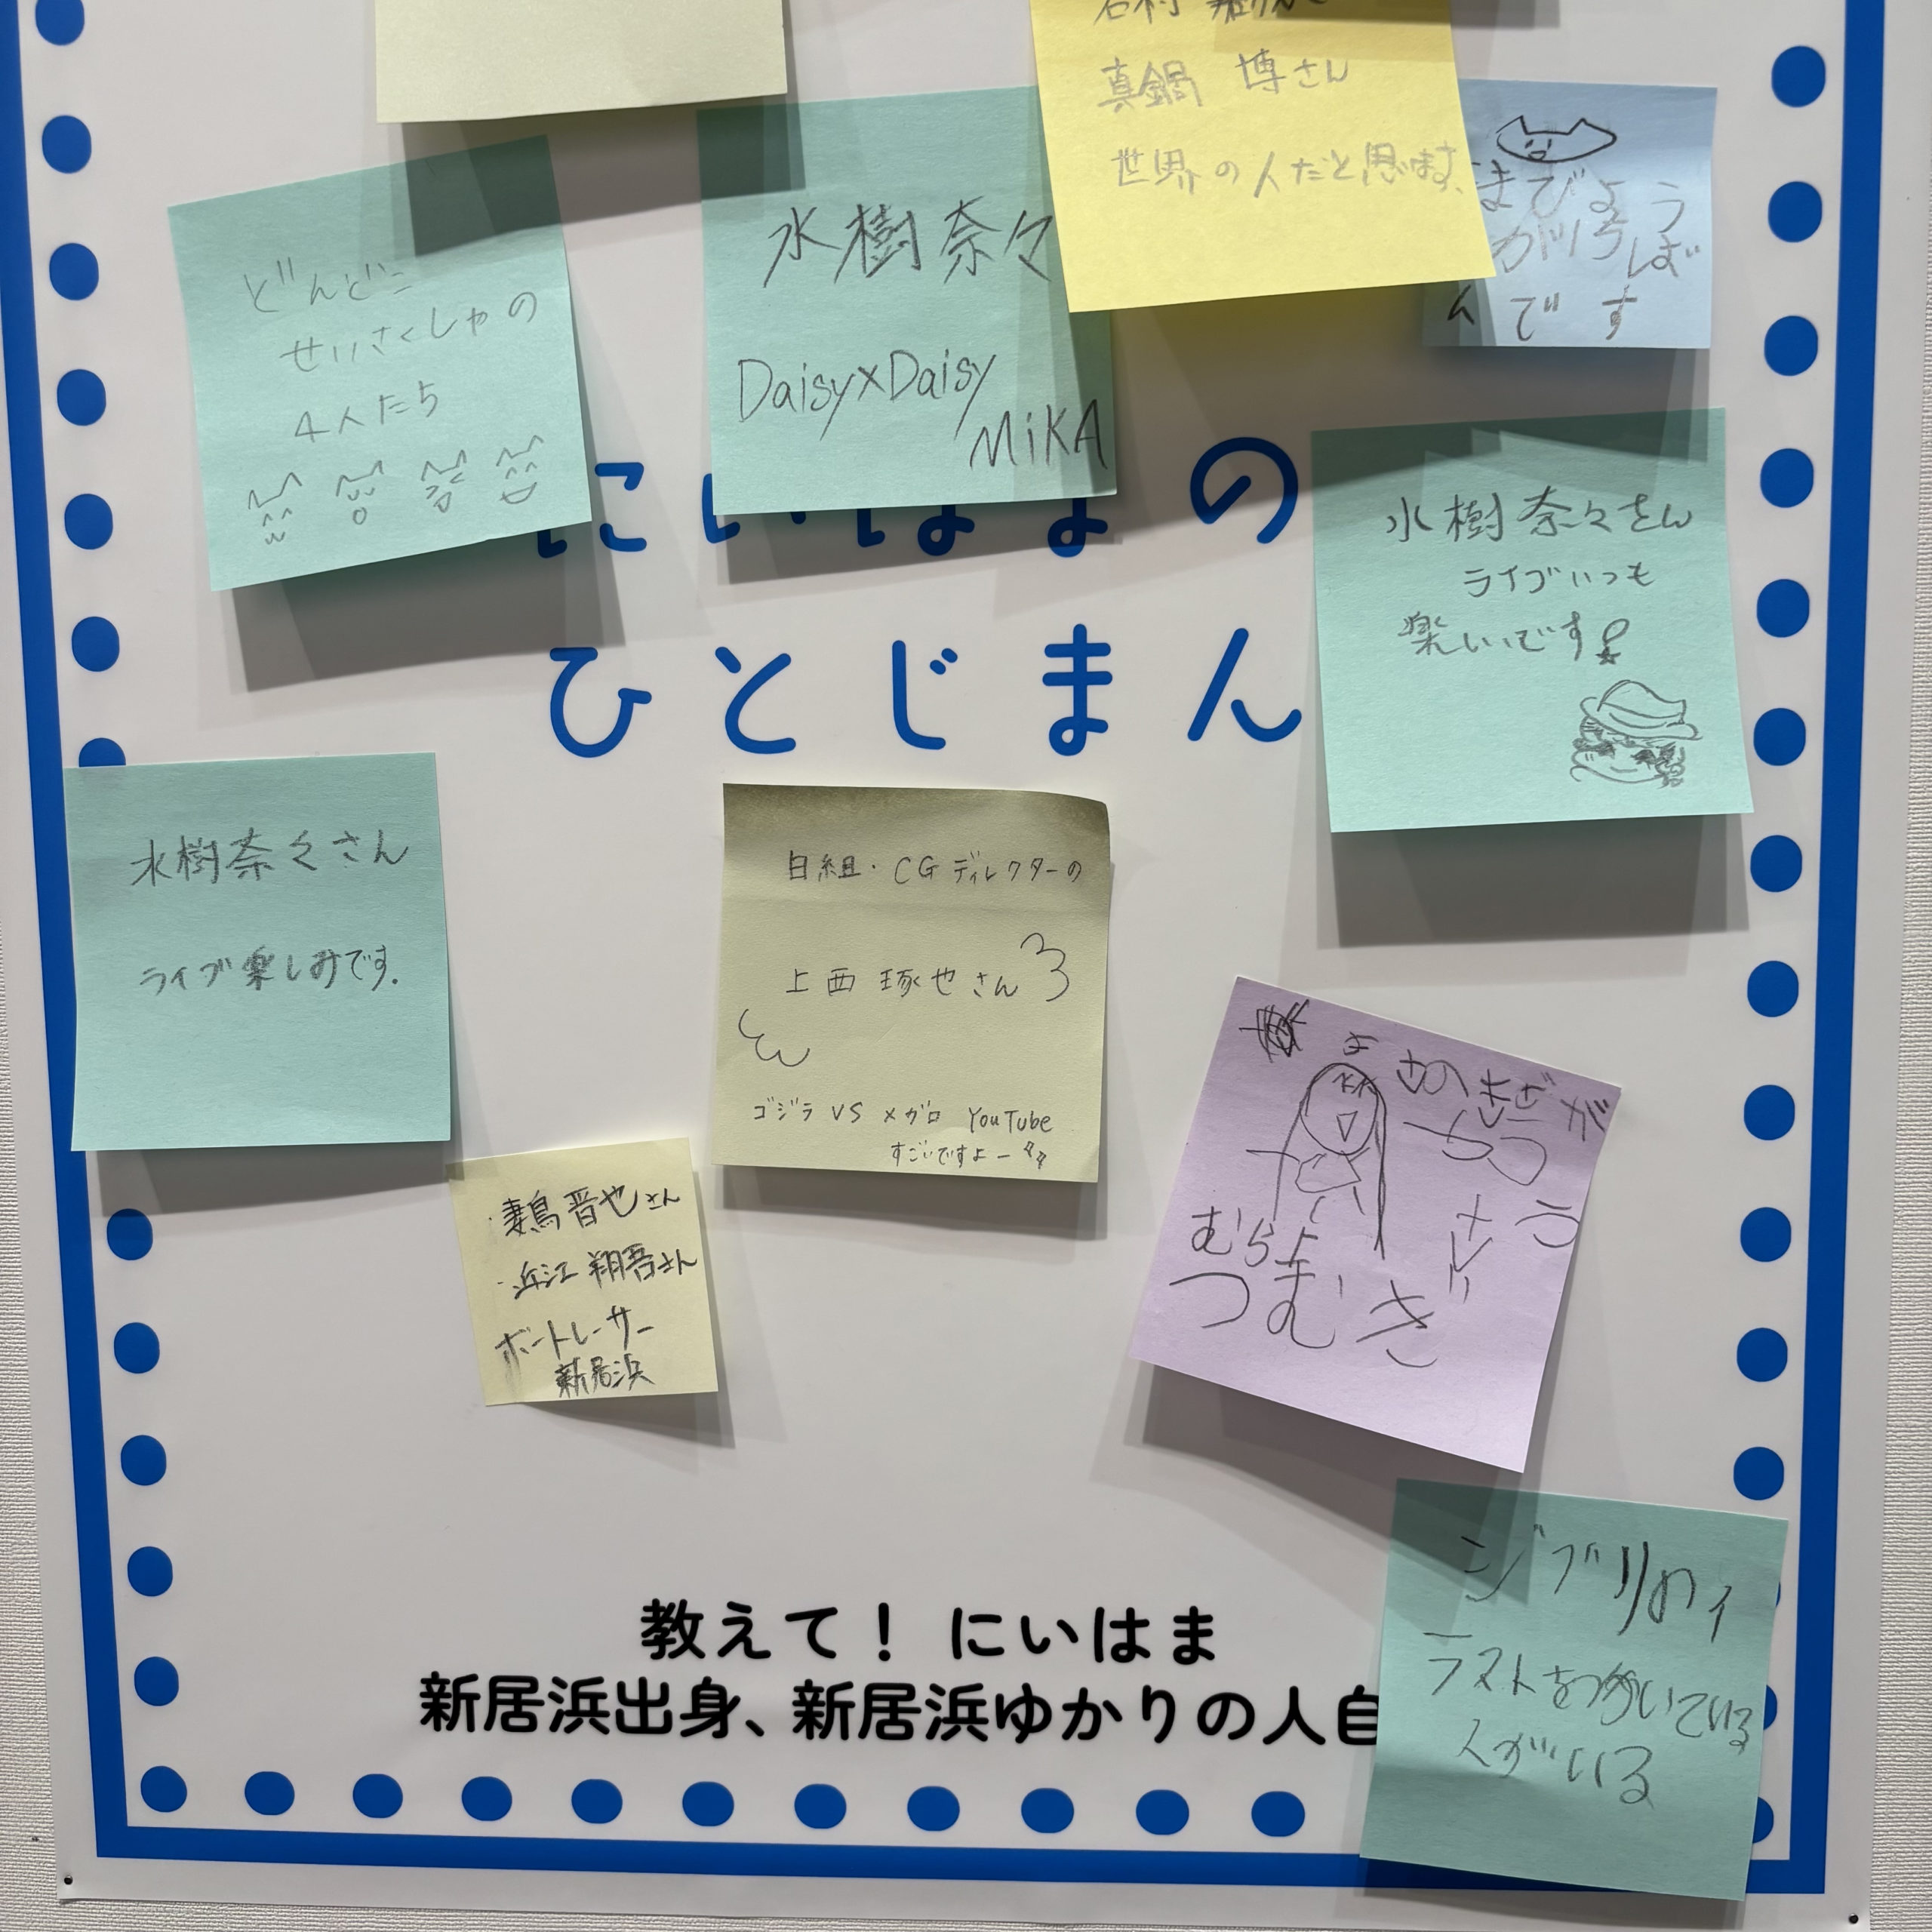 真鍋 博さん
世界の人だと思います、
まびょう
んです
どんどこ
せいさくしゃの
4人たち
水樹奈々
Daisy×Daisy
MiKA
にいはまの
ひとじまん
水樹奈々さん
ライブいつも
楽しいです!
水樹奈々さん
ライブ楽しみです.
白組・CGディレクターの
上西 琢也さん
ゴジラ VS メガロ YouTube
すごいですよー
・妻鳥晋也さん
・近江翔吾さん
ボートレーサー
新居浜
むらよ
つむぎ
ジブリのイ
ラストをかいている
人がいる
教えて! にいはま
新居浜出身、新居浜ゆかりの人自